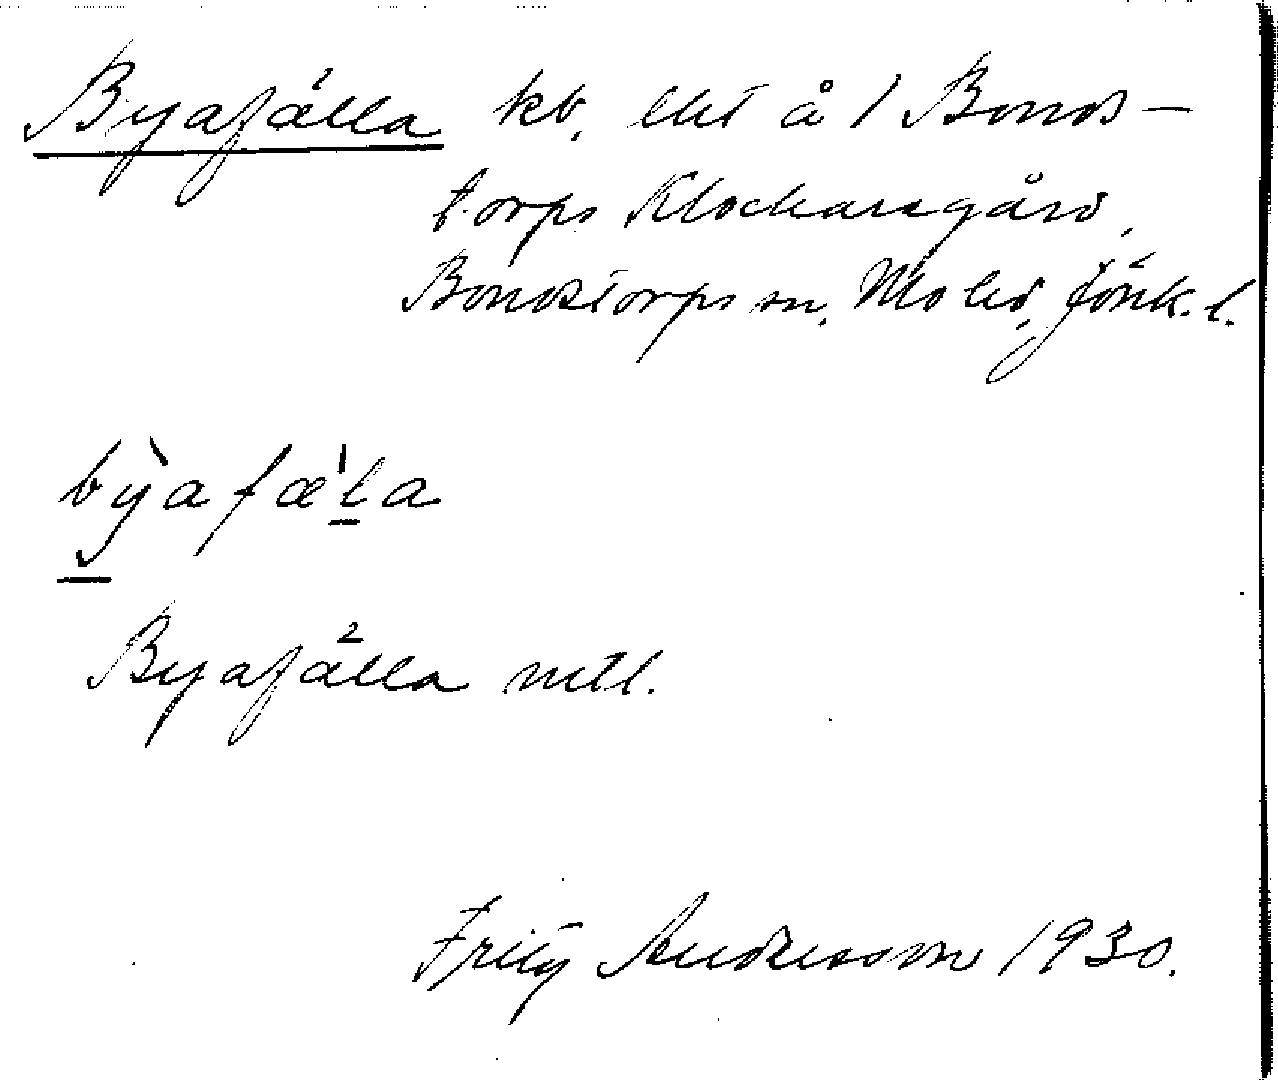 Byafälla kb. litet å 1 Bonds-
torps Klockaregård,
Bondstorps sn, Mo hd, Jönk. l.
by̆̀afæ̀la
Byafälla mtl.
Fritz Andersson 1930.